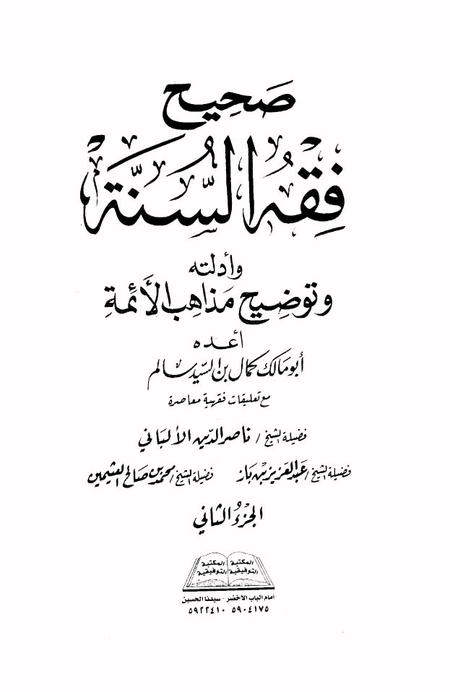 صحيح
فقه السنة
وأدلته
وتوضيح مذاهب الأئمة
أعده
أبو مالك كمال بن السيد سالم
مع تعليقات فقهية معاصرة
فضيلة الشيخ / ناصر الدين الألباني
فضيلة الشيخ / عبد العزيز بن باز فضيلة الشيخ / محمد بن صالح العثيمين
الجزء الثاني
المكتبة التوفيقية المكتبة التوفيقية
أمام الباب الأخضر - سيدنا الحسين
٥٩٠٤١٧٥ ٥٩٢٢٤١٠